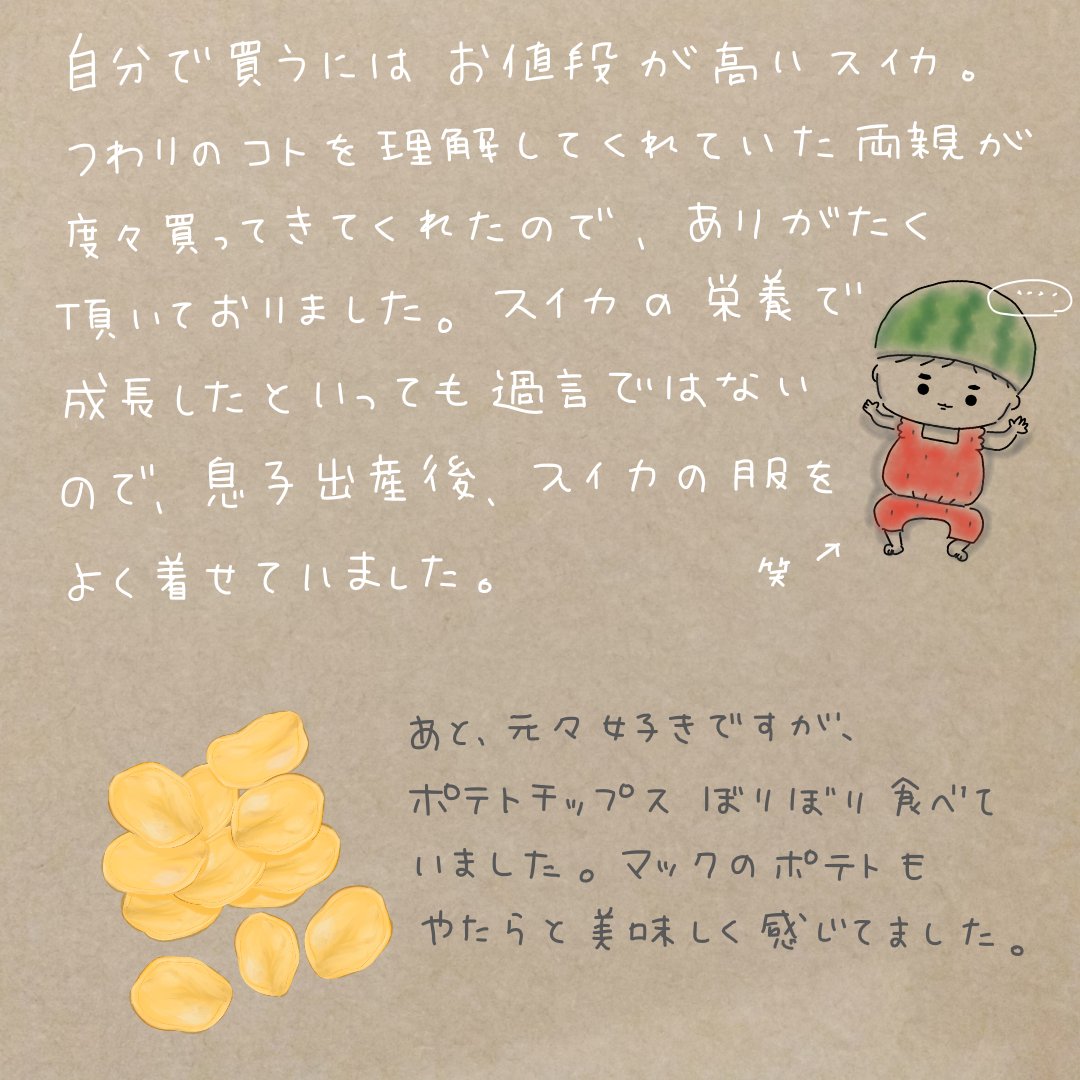 自分で買うには お値段が高いスイカ。
つわりのコトを理解してくれていた両親が
度々買ってきてくれたので、ありがたく
頂いておりました。スイカの栄養で
成長したといっても過言ではない
ので、息子出産後、スイカの服を
よく着せていました。
笑
....
あと、元々好きですが、
ポテトチップス ぼりぼり食べて
いました。マックのポテトも
やたらと美味しく感じてました。